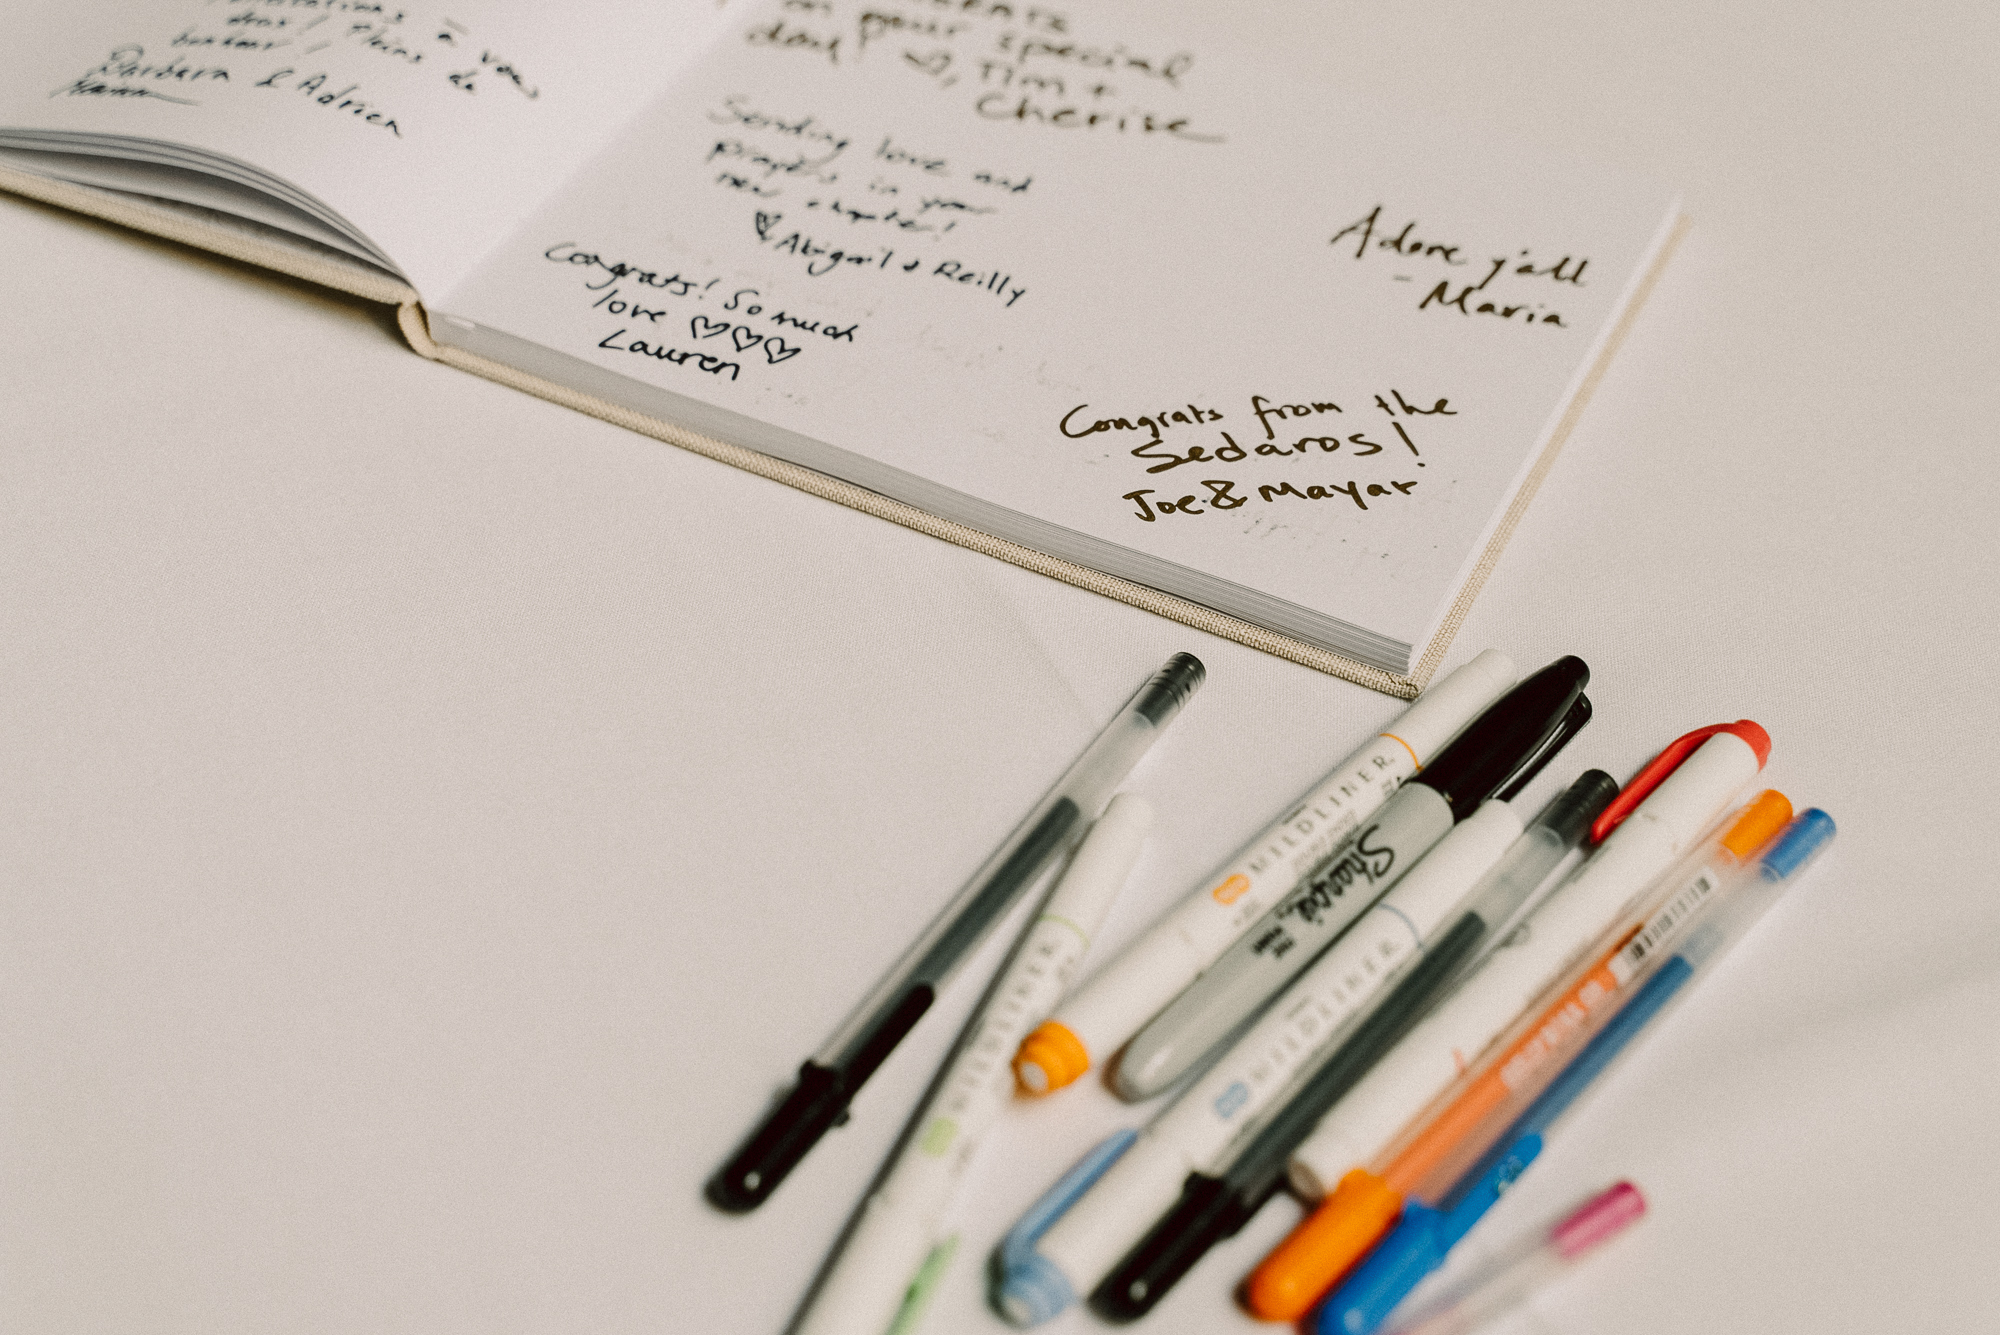 à vous
deux! Pleins de
bonheur!
Barbara & Adrien
on your special
day! ♡, Tim +
Cherise
Sending love and
prayers in your
new chapter!
♡ Abigail + Reilly
Congrats! So much
love ♡♡♡
Lauren
Adore y'all
- Maria
Congrats from the
Sedaros!
Joe & Mayar
MILDLINER
Sharpie
MILDLINER
MILDLINER